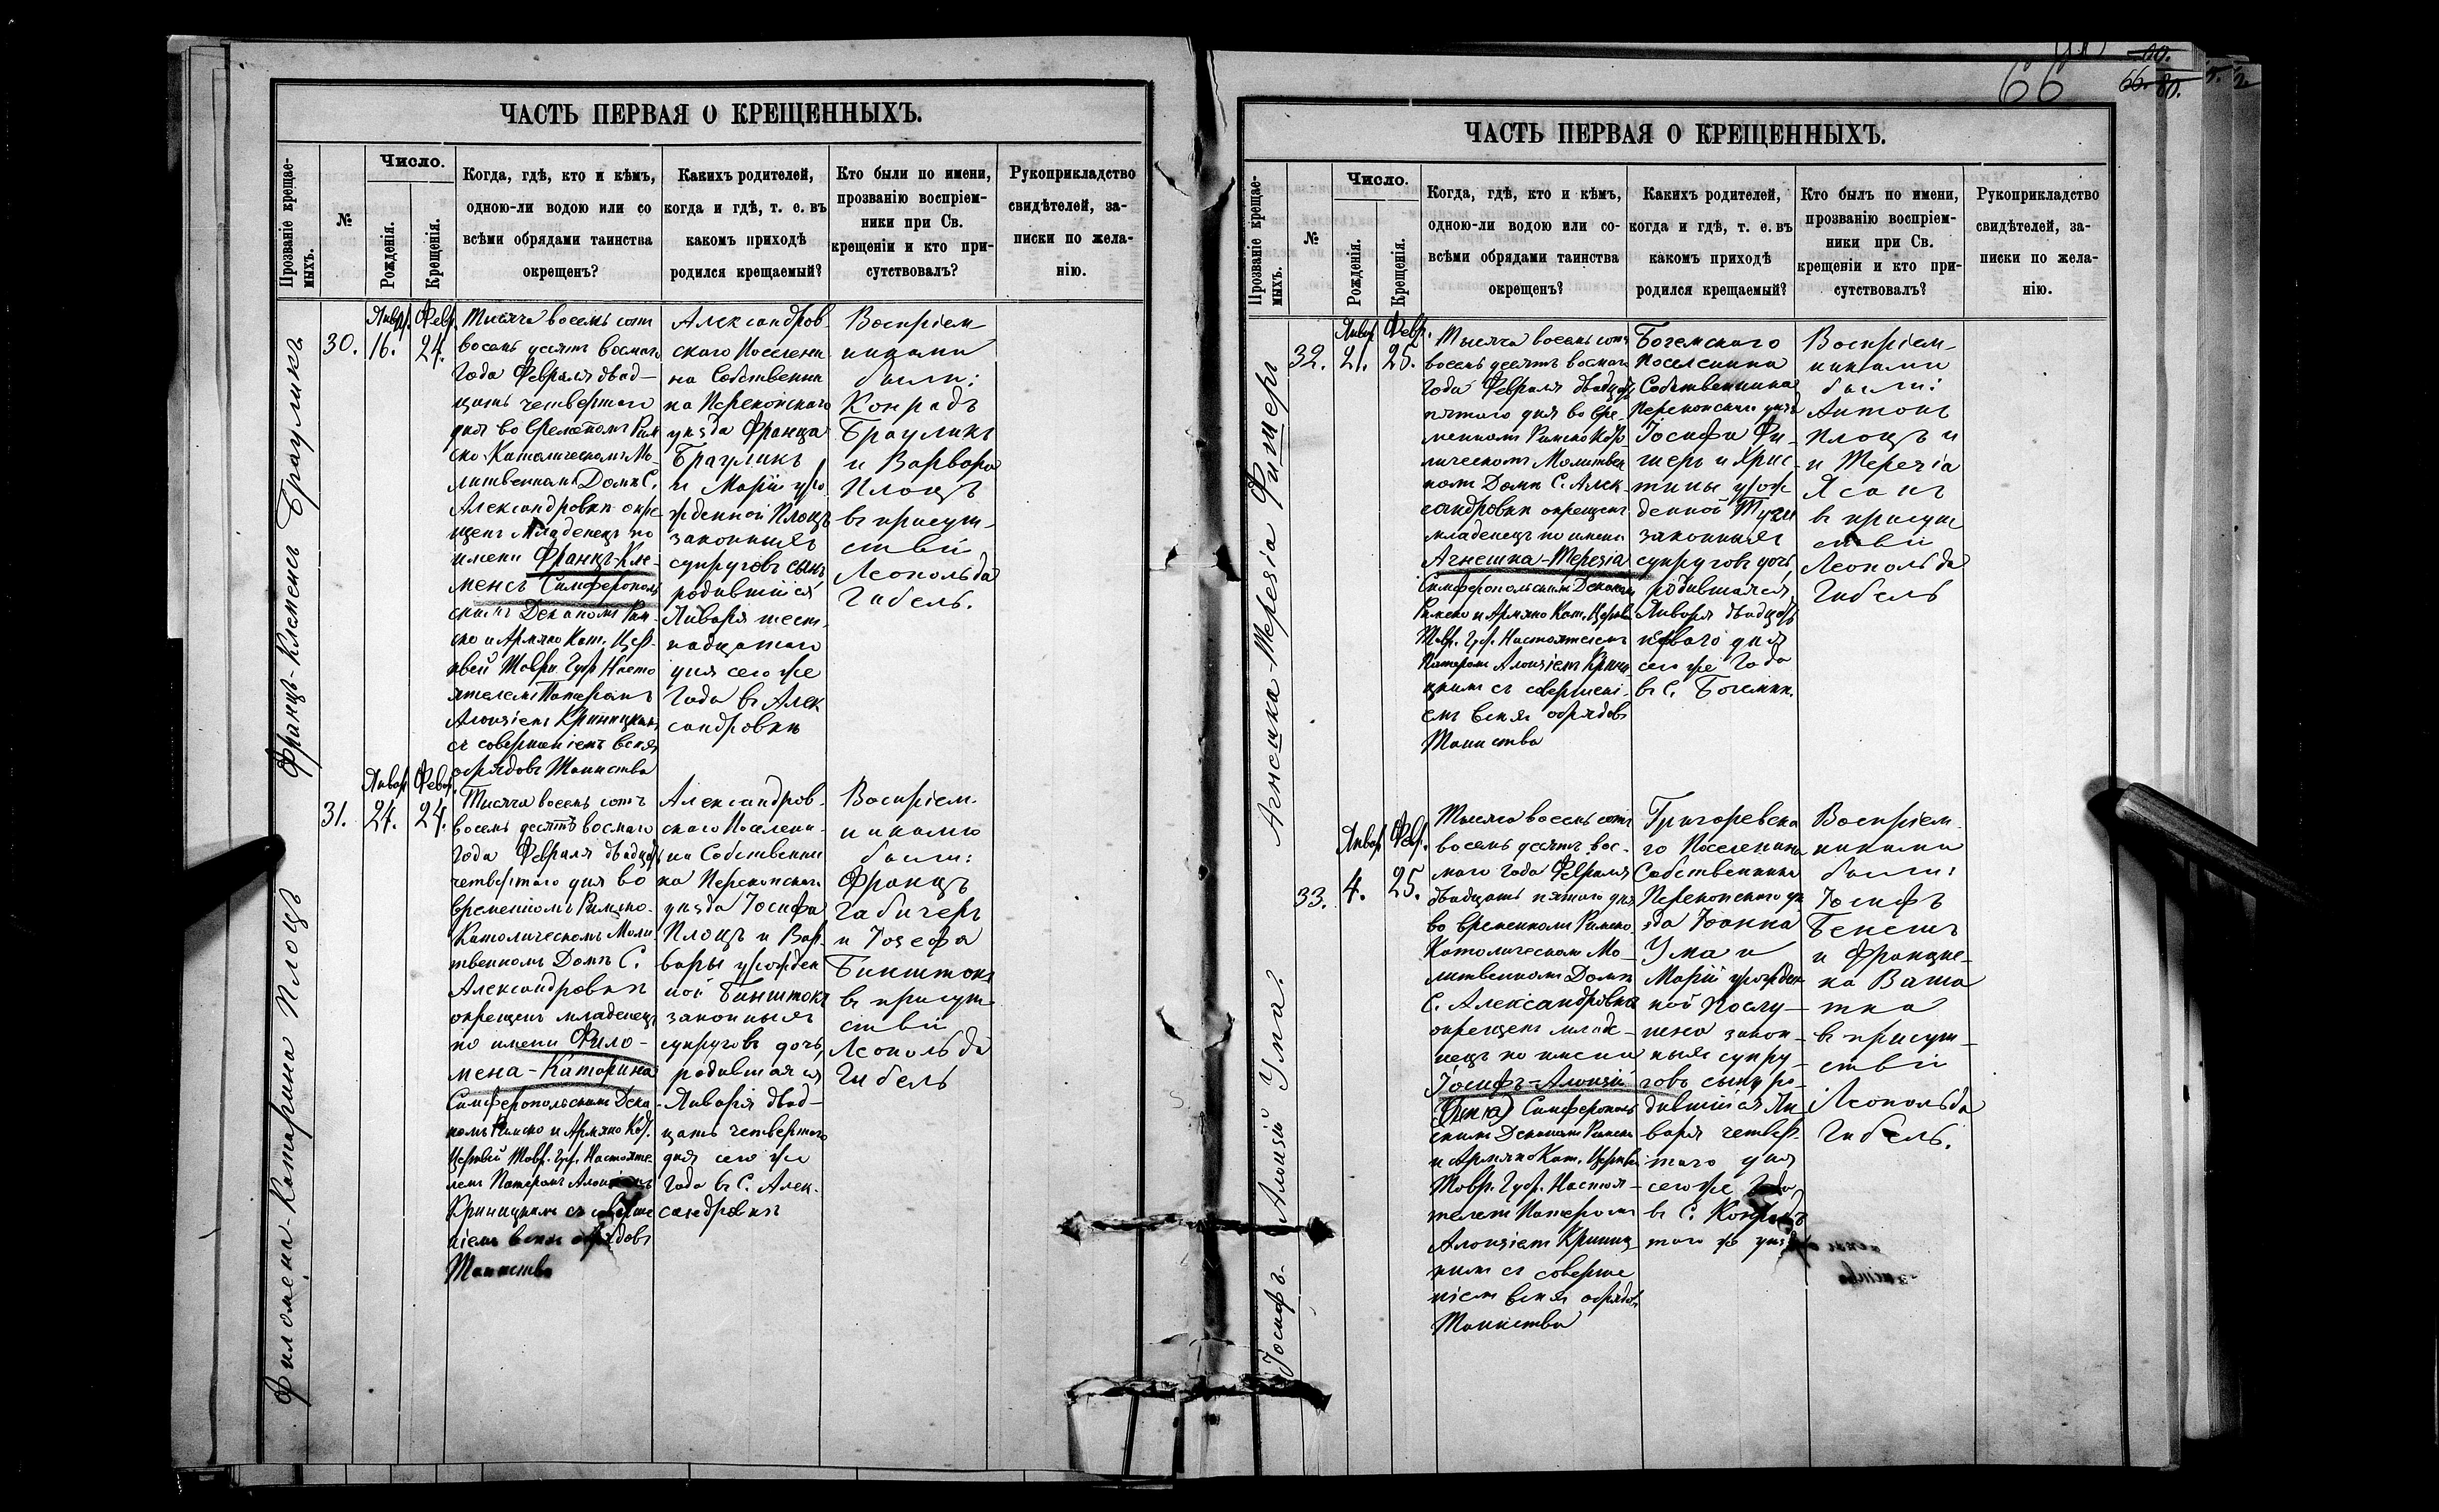 ЧАСТЬ ПЕРВАЯ О КРЕЩЕННЫХЪ.
Прозваніе крещае-
мыхъ.
№
Число.
Рожденія.
Крещенія.
Когда, гдѣ, кто и кѣмъ,
одною-ли водою или со
всѣми обрядами таинства
окрещенъ?
Какихъ родителей,
когда и гдѣ, т. е. въ
какомъ приходѣ
родился крещаемый?
Кто были по имени,
прозванію воспріем-
ники при Св.
крещеніи и кто при-
сутствовалъ?
Рукоприкладство
свидѣтелей, за-
писки по жела-
нію.
Францъ-Клеменсъ Брауликъ
30.
Янвр.
16.
Февр.
24.
Тысяча восемь сотъ
восемь десятъ восмаго
Года Февраля двад-
цать четвертаго
дня во временномъ Рим
ско-Католическомъ Мо-
литвенномъ Домѣ С.
Александровки окре
щенъ младенецъ по
имени Францъ-Кле-
менсъ Симферополь
скимъ Деканомъ Рим-
ско и Армяно Кат. Цер-
квей Тавр. Губ. Насто
ятелемъ Патеромъ
Алоизіемъ Криницкимъ
съ совершеніемъ всехъ
обрядовъ Таинства
Александров-
скаго Поселени
на Собственни
ка Перекопскаго
уѣзда Франца
Брауликъ
и Маріи уро
жденной Плоцъ
законныхъ
супруговъ сынъ
родившійся
Января шест-
надцатаго
дня сего же
Года въ Алек
сандровкѣ
Воспріем-
никами
были:
Конрадъ
Брауликъ
и Варвара
Плоцъ
въ присут-
ствіи
Леопольда
Гибель.
Филомена-Катарина Плоцъ
31.
Январ
24.
Февр.
24.
Тысяча восемь сотъ
восемь десятъ восмаго
Года Февраля двадцать
четвертаго дня во
временномъ Римско-
Католическомъ Моли
твенномъ Домѣ С.
Александровкѣ
окрещенъ младенецъ
по имени Фило-
мена-Катарина
Симферопольскимъ Дека
номъ Римско и Армяно Кат.
Церквей Тавр. Губ. Настояте-
лемъ Патеромъ Алоизіемъ
Криницкимъ съ соверше
ніемъ всехъ обрядовъ
Таинства
Александров-
скаго Поселени-
на Собственни
ка Перекопскаго
уѣзда Іосифа
Плоцъ и Вар-
вары урожден
ной Бинштокъ
законныхъ
супруговъ дочь,
родившаяся
Января двад-
цать четвертаго
дня сего же
Года въ С. Алек-
сандровкѣ
Воспріем-
никами
были:
Францъ
Габичеръ
и Іозефа
Бинштокъ
въ присут-
ствіи
Леопольда
Гибель
66
66. 80.
ЧАСТЬ ПЕРВАЯ О КРЕЩЕННЫХЪ.
Прозваніе крещае-
мыхъ.
№
Число.
Рожденія.
Крещенія.
Когда, гдѣ, кто и кѣмъ,
одною-ли водою или со-
всѣми обрядами таинства
окрещенъ?
Какихъ родителей,
когда и гдѣ, т. е. въ
какомъ приходѣ
родился крещаемый?
Кто былъ по имени,
прозванію воспріем-
ники при Св.
крещеніи и кто при-
сутствовалъ?
Рукоприкладство
свидѣтелей, за-
писки по жела-
нію.
Агнешка-Терезія Фишеръ
32.
Январ
21.
Февр.
25.
Тысяча восемь сотъ
восемь десятъ восмаго
Года Февраля двадцать
пятаго дня во вре-
менномъ Римско Като
лическомъ Молитвен
номъ Домѣ С. Алек-
сандровки окрещенъ
младенецъ по имени
Агнешка-Терезія
Симферопольскимъ Деканом
Римско и Армяно Кат. Церкв
Тавр. Губ. Настоятелемъ
Патеромъ Алоизіемъ Крини
цкимъ съ совершені-
емъ всехъ обрядовъ
Таинства
Богемскаго
Поселенина
Собственника
Перекопскаго уѣзда
Іосифа Фи-
шеръ и Хрис-
тины урож
денной
законныхъ
супруговъ дочь,
родившаяся
Января двадцать
перваго дня
сего же Года
въ С. Богемкѣ.
Воспріем-
никами
были:
Антонъ
Плоцъ и
и Терезія
Ясанъ
въ присут
ствіи
Леопольда
Гибель
Іосифъ-Алоизій Ума.
33.
Январ
4.
Февр.
25.
Тысяча восемь сотъ
восемь десятъ вос-
маго Года Февраля
двадцать пятаго дня
во временномъ Римско-
Католическомъ Мо-
литвенномъ Домѣ
С. Александровка
окрещенъ младе-
нецъ по имени
Іосифъ-Алоизій
Симферополь
скимъ Деканомъ Римско
и Армяно Кат. Церквей
Тавр. Губ. Настоя-
телемъ Патеромъ
Алоизіемъ Криниц-
кимъ съ соверше
ніемъ всехъ обрядовъ
Таинства
Григоревска
го Поселенина
Собственника
Перекопскаго уѣ
зда Іоанна
Ума и
Маріи урожден
ной Послу-
шна закон-
ныхъ супру-
говъ сынъ ро-
дившійся Ян-
варя четвер-
таго дня
сего же Года
въ С.
того же уѣзда
Воспріем-
никами
были:
Іосифъ
Бенешъ
и Францис-
ка Вата
тка
въ присут-
ствіи
Леопольда
Гибель.